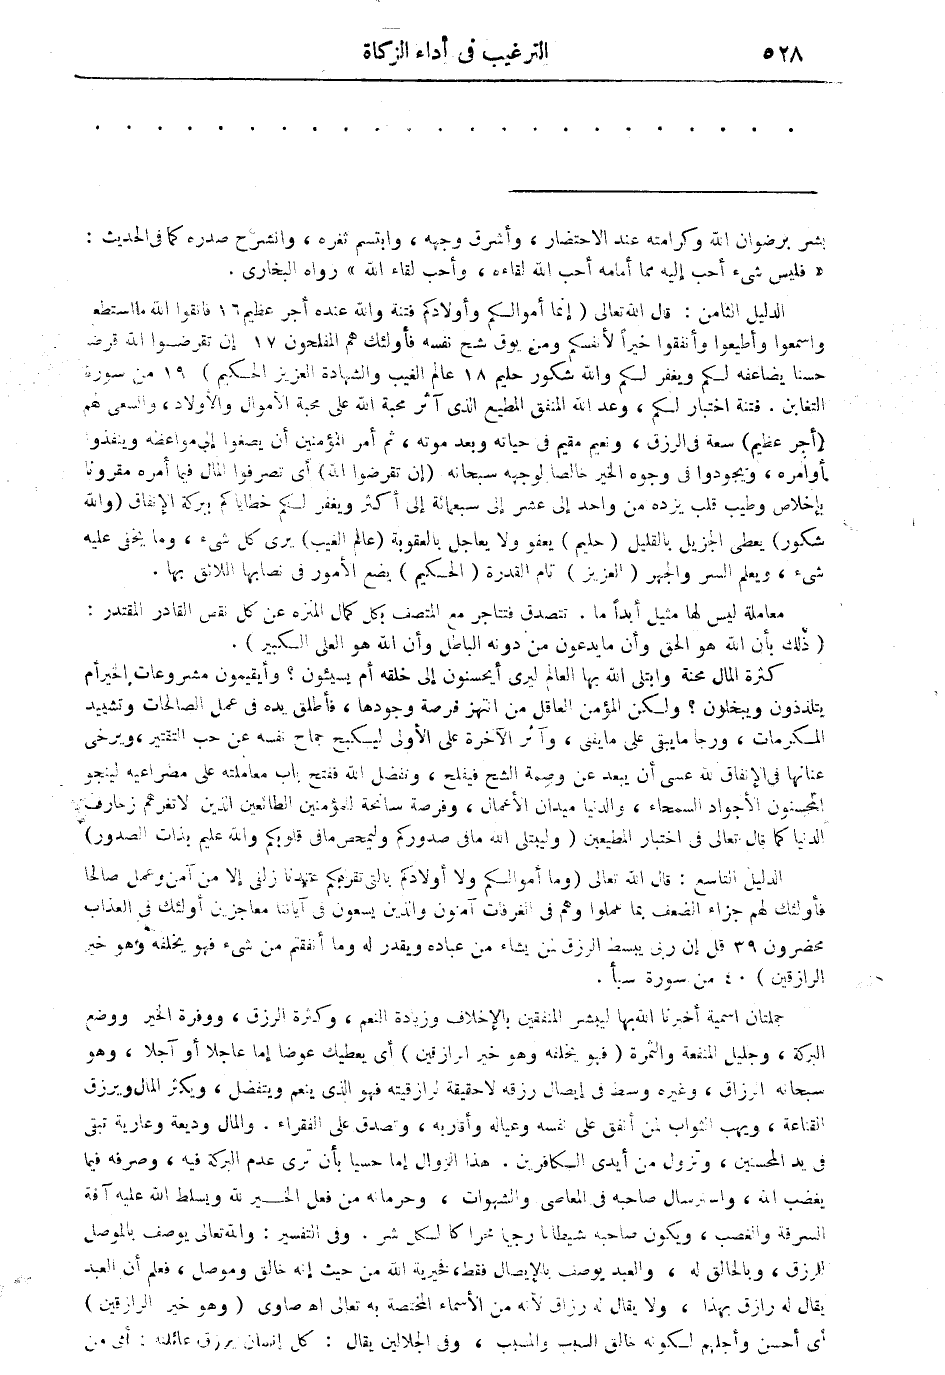 ٥٢٨
الترغيب فى أداء الزكاة
بشر برضوان الله وكرامته عند الاحتضار ، وأشرق وجهه ، وابتسم ثغره ، وانشرح صدره كما فى الحديث :
« فليس شىء أحب إليه مما أمامه أحب الله لقاءه ، وأحب لقاء الله » رواه البخارى .
الدليل الثامن : قال الله تعالى ( إنما أموالكم وأولادكم فتنة والله عنده أجر عظيم ١٦ فاتقوا الله ما استطعتم
واسمعوا وأطيعوا وأنفقوا خيراً لأنفسكم ومن يوق شح نفسه فأولئك هم المفلحون ١٧ إن تقرضوا الله قرضا
حسنا يضاعفه لكم ويغفر لكم والله شكور حليم ١٨ عالم الغيب والشهادة العزيز الحكيم ) ١٩ من سورة
التغابن . فتنة اختبار لكم ، وعد الله المنفق المطيع الذى آثر محبة الله على محبة الأموال والأولاد ، والسعى لهم
(أجر عظيم) سعة فى الرزق ، ونعيم مقيم فى حياته وبعد موته ، ثم أمر المؤمنين أن يصغوا إلى مواعظه وينفذوا
أوامره ، ويجودوا فى وجوه الخير خالصا لوجهه سبحانه (إن تقرضوا الله) أى تصرفوا المال فيما أمره مقرونا
بإخلاص وطيب قلب يزده من واحد إلى عشر إلى سبعمائة إلى أكثر ويغفر لكم خطاياكم ببركة الإنفاق (والله
شكور) يعطى الجزيل بالقليل ( حليم ) يعفو ولا يعاجل بالعقوبة (عالم الغيب) يرى كل شىء ، وما يخفى عليه
شىء ، ويعلم السر والجهر ( العزيز ) تام القدرة ( الحكيم ) يضع الأمور فى نصابها اللائق بها .
معاملة ليس لها مثيل أبداً ما . تتصدق فتتاجر مع المتصف بكل كمال المنزه عن كل نقص القادر المقتدر :
( ذلك بأن الله هو الحق وأن ما يدعون من دونه الباطل وأن الله هو العلى الكبير ) .
كثرة المال محنة وابتلى الله بها العالم ليرى أيحسنون إلى خلقه أم يسيئون ؟ وأيقيمون مشروعات الخير أم
يتلذذون ويبخلون ؟ ولكن المؤمن العاقل من انتهز فرصة وجودها ، فأطلق يده فى عمل الصالحات وتشييد
المكرمات ، ورجا ما يبقى على ما يفنى ، وآثر الآخرة على الأولى ليكبح جماح نفسه عن حب التقتير ، ويرخى
عنانها فى الإنفاق لله عسى أن يبعد عن وصمة الشح فيفلح ، وتفضل الله ففتح باب معاملته على مصراعيه لينجو
المحسنون الأجواد السمحاء ، والدنيا ميدان الأعمال ، وفرصة سانحة للمؤمنين الطائعين الذين لا تغرهم زخارف
الدنيا كما قال تعالى فى اختبار المطيعين ( وليبتلى الله ما فى صدوركم وليمحص ما فى قلوبكم والله عليم بذات الصدور)
الدليل التاسع : قال الله تعالى (وما أموالكم ولا أولادكم بالتى تقربكم عندنا زلفى إلا من آمن وعمل صالحا
فأولئك لهم جزاء الضعف بما عملوا وهم فى الغرفات آمنون والذين يسعون فى آياتنا معاجزين أولئك فى العذاب
محضرون ٣٩ قل إن ربى يبسط الرزق لمن يشاء من عباده ويقدر له وما أنفقتم من شىء فهو يخلفه وهو خير
الرازقين ) ٤٠ من سورة سبأ .
جملتان اسمية أخبرنا الله بها ليبشر المنفقين بالإخلاف وزيادة النعم ، وكثرة الرزق ، ووفرة الخير ووضع
البركة ، وجليل المنفعة والثمرة ( فهو يخلفه وهو خير الرازقين ) أى يعطيك عوضا إما عاجلا أو آجلا ، وهو
سبحانه الرزاق ، وغيره وسط فى إيصال رزقه لا حقيقة لرازقيته فهو الذى ينعم ويتفضل ، ويكثر المال ويرزق
القناعة ، ويهب الثواب لمن أنفق على نفسه وعياله وأقاربه ، وتصدق على الفقراء . والمال وديعة وعارية تبقى
فى يد المحسنين ، وتزول من أيدى الكافرين . هذا الزوال إما حسيا بأن ترى عدم البركة فيه ، وصرفه فيما
يغضب الله ، واسترسال صاحبه فى المعاصى والشهوات ، وحرمانه من فعل الخير لله ويسلط الله عليه آفة
السرقة والغصب ، ويكون صاحبه شيطانا رجيما محراكا لكل شر . وفى التفسير : والله تعالى يوصف بالموصل
للرزق ، وبالخالق له ، والعبد يوصف بالإيصال فقط، فخيرية الله من حيث إنه خالق وموصل ، فعلم أن العبد
يقال له رازق بهذا ، ولا يقال له رزاق لأنه من الأسماء المختصة به تعالى اه صاوى ( وهو خير الرازقين )
أى أحسن وأجلهم لكونه خالق السبب والمسبب ، وفى الجلالين يقال : كل إنسان يرزق عائلته : أى من